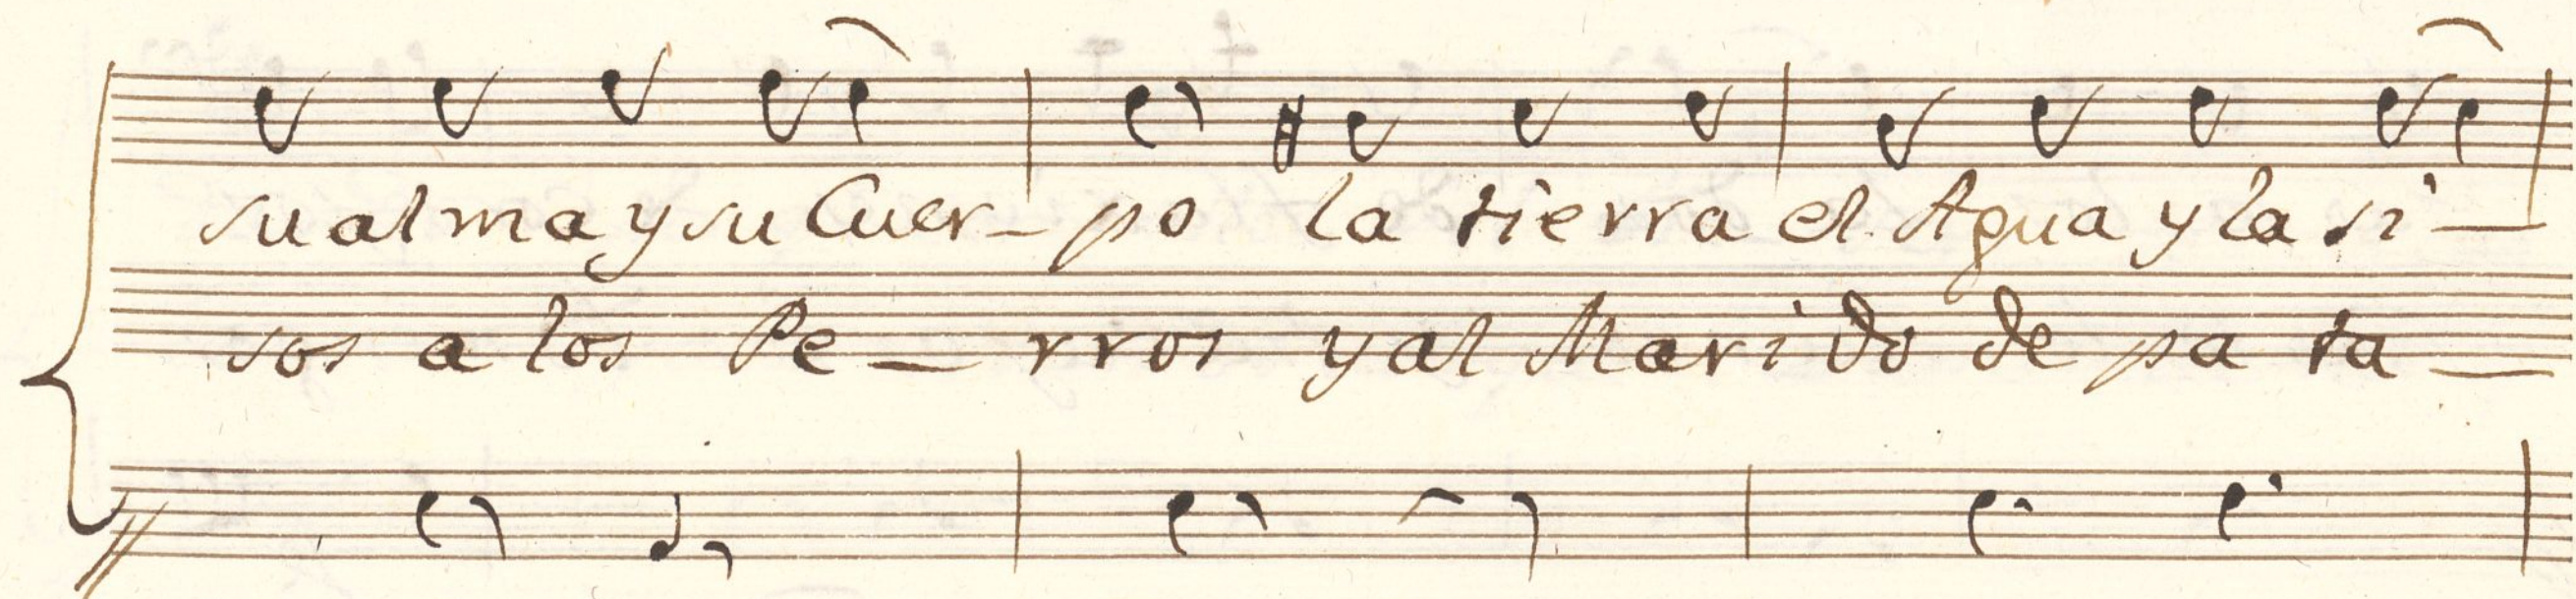 su alma y su Cuer_po la tierra el Agua y la si_
sos a los Pe_rros y al Marido de pa ta_